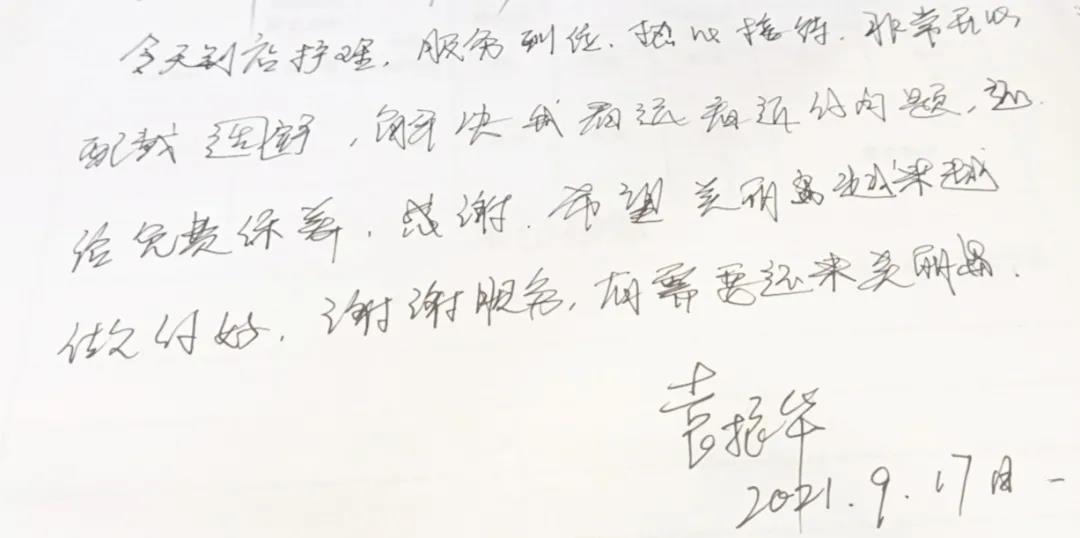 今天到店护理,服务到位.热心接待.非常开心
配戴 适舒,解决我看远看近的问题,还
给免费保养.感谢.希望美丽岛越来越
做的好.谢谢服务,有需要还来美丽岛.
袁振华
2021.9.17日